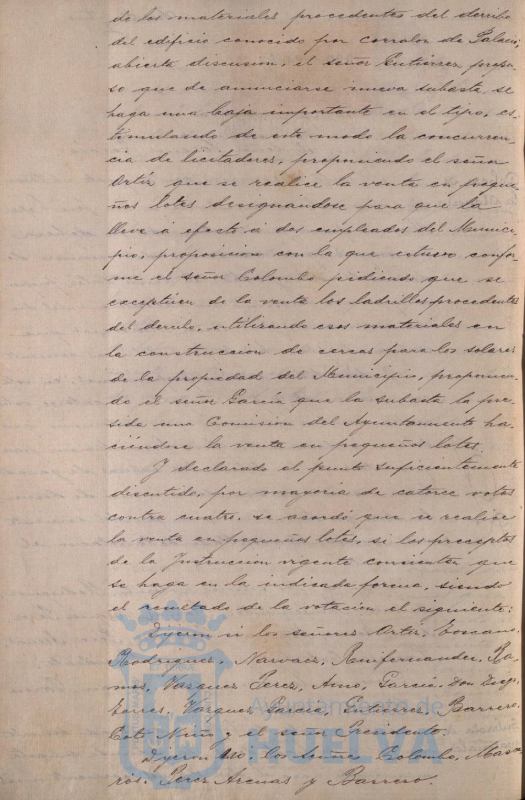 de los materiales procedentes del derribo
del edificio conocido por corralon de Palacio;
abierta discusion, el señor Gutierrez propu-
so que de anunciarse nueva subasta, se
haga una baja importante en el tipo, es-
timulando de este modo la concurren-
cia de licitadores, proponiendo el señor
Ortiz que se realice la venta en peque-
ños lotes designandose para que la
lleve á efecto á dos empleados del Munici-
pio, proposicion con la que estuvo confor-
me el señor Colombo pidiendo que se
exceptuen de la venta los ladrillos procedentes
del derribo, utilizando esos materiales en
la construccion de cercas para los solares
de la propiedad del Municipio, proponien-
do el señor García que la subasta la pre-
sida una Comision del Ayuntamiento ha-
ciéndose la venta en pequeños lotes.
Y declarado el punto suficientemente
discutido, por mayoria de catorce votos
contra cuatro, se acordó que se realice
la venta en pequeños lotes, si los preceptos
de la Instruccion vigente consienten que
se haga en la indicada forma, siendo
el resultado de la votacion el siguiente:
Dijeron si los señores Ortiz, Toscano,
Rodriguez, Narvaez, Ra-
mos, Vazquez Perez, García, Don
Vazquez García, Gutierrez, Barrero,
Niño y el señor Presidente.
Dijeron no, los Señores Colombo,
Perez Arenas y Barrero.
Ayuntamiento de
HUELVA